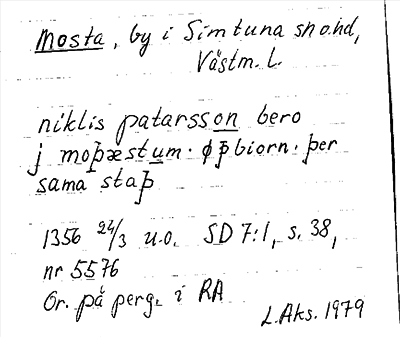 Mosta, by i Simtuna sn o. hd,
Västm. l.
niklis patarsson bero
j moþæstum · øþbiorn · þer
sama staþ
1356 24/3 u.o. SD 7:1, s. 38,
nr 5576
Or. på perg. i RA
L.Aks. 1979